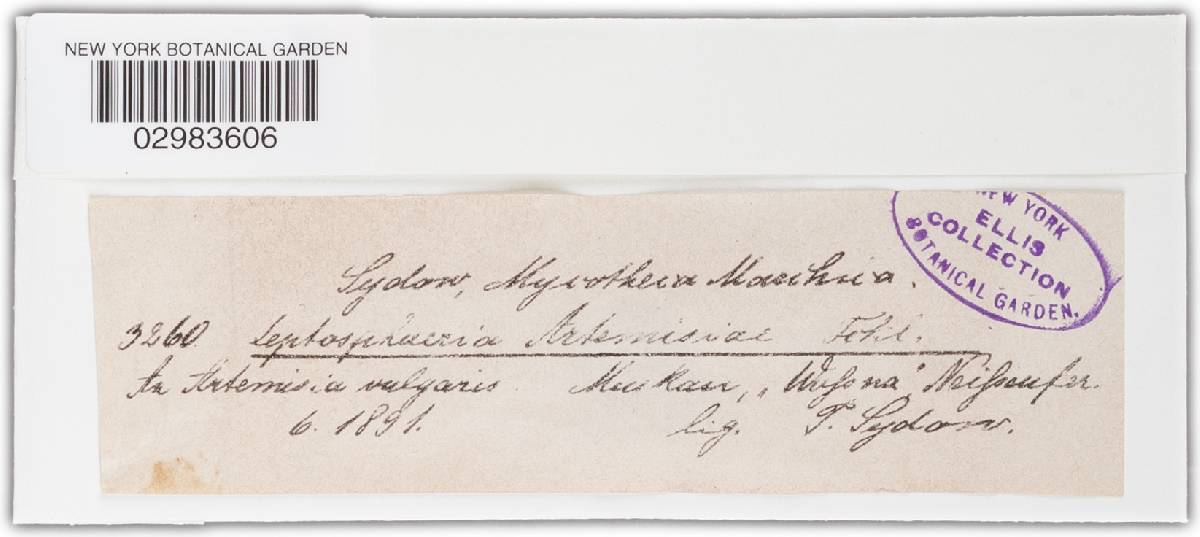 NEW YORK BOTANICAL GARDEN
02983606
NEW YORK
ELLIS
COLLECTION
BOTANICAL GARDEN.
Sydow, Mycotheca Marchica.
3260 Leptosphaeria Artemisiae Fckl.
An Artemisia vulgaris Muskau, „Wussina“ Neißeufer.
6. 1891. lig. P. Sydow.